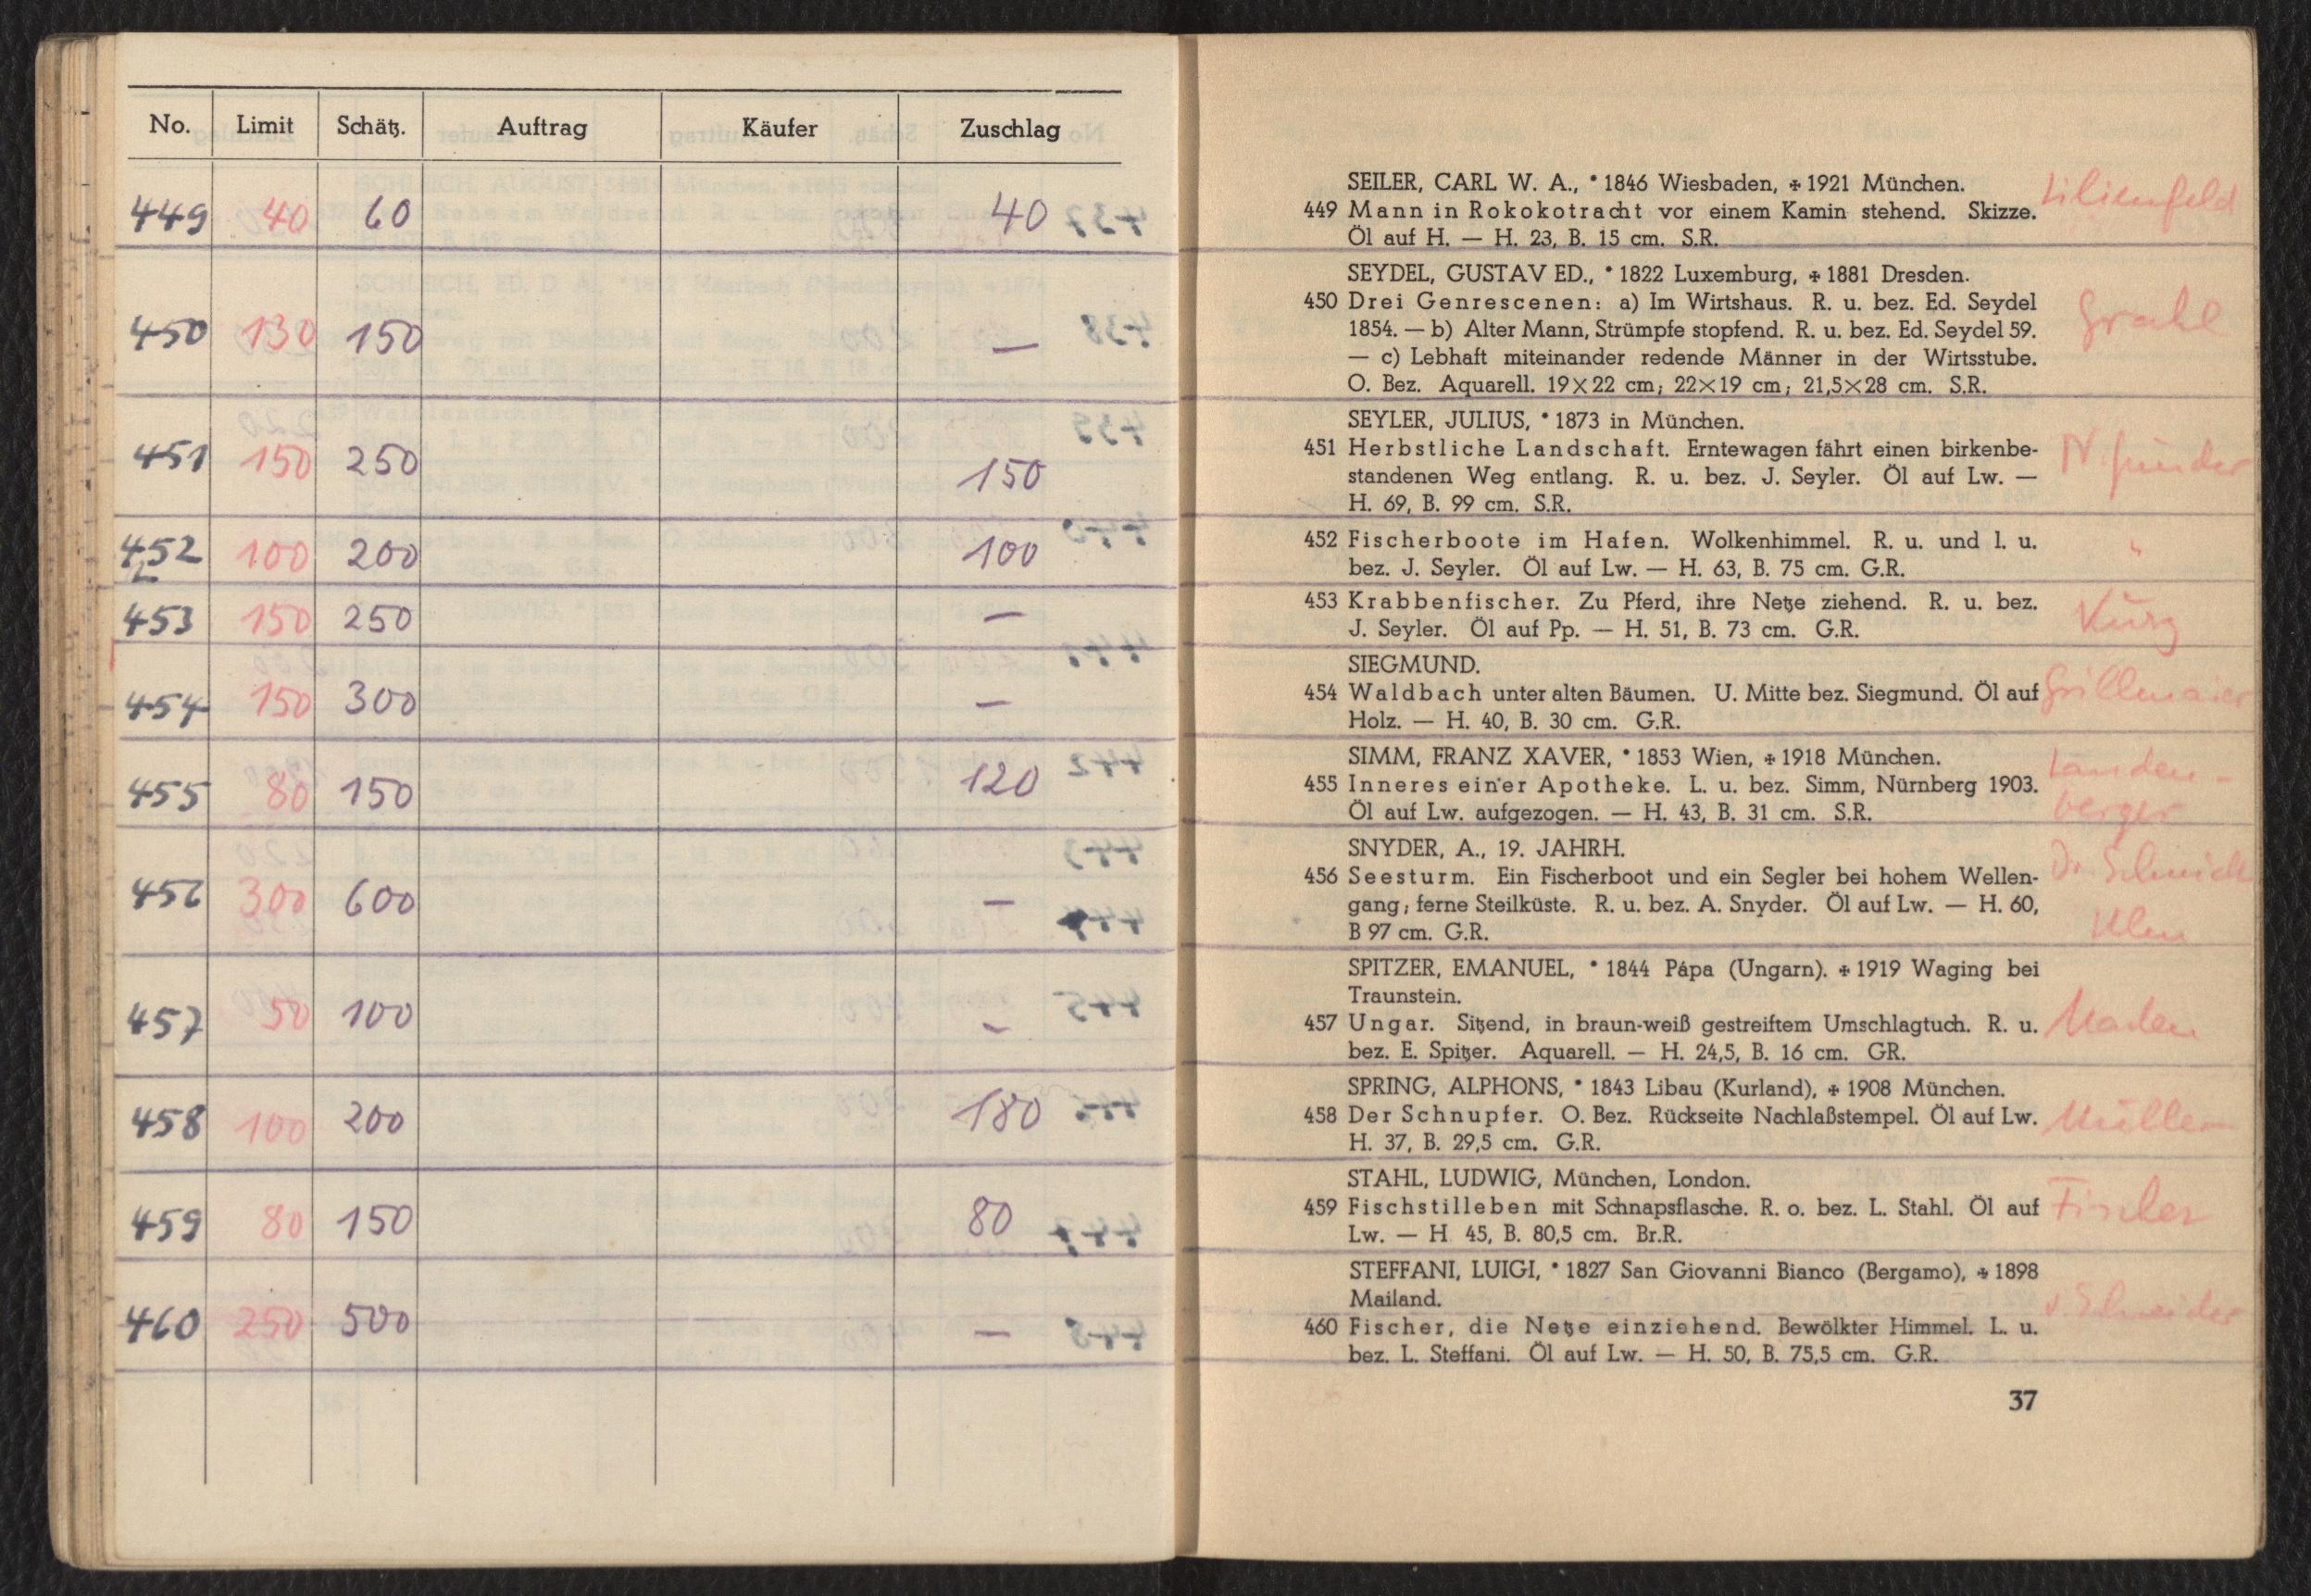 No. Limit Schätz. Auftrag Käufer Zuschlag
449 40 60 40
450 130 150 —
451 150 250 150
452 100 200 100
453 150 250 —
454 150 300 —
455 80 150 120
456 300 600 —
457 50 100 —
458 100 200 180
459 80 150 80
460 250 500 —
SEILER, CARL W. A., * 1846 Wiesbaden, ✠ 1921 München. Lilienfeld
449 Mann in Rokokotracht vor einem Kamin stehend. Skizze.
Öl auf H. — H. 23, B. 15 cm. S.R.
SEYDEL, GUSTAV ED., * 1822 Luxemburg, ✠ 1881 Dresden.
450 Drei Genrescenen: a) Im Wirtshaus. R. u. bez. Ed. Seydel Grahl
1854. — b) Alter Mann, Strümpfe stopfend. R. u. bez. Ed. Seydel 59.
— c) Lebhaft miteinander redende Männer in der Wirtsstube.
O. Bez. Aquarell. 19×22 cm; 22×19 cm; 21,5×28 cm. S.R.
SEYLER, JULIUS, * 1873 in München.
451 Herbstliche Landschaft. Erntewagen fährt einen birkenbe-
standenen Weg entlang. R. u. bez. J. Seyler. Öl auf Lw. —
H. 69, B. 99 cm. S.R.
452 Fischerboote im Hafen. Wolkenhimmel. R. u. und l. u. "
bez. J. Seyler. Öl auf Lw. — H. 63, B. 75 cm. G.R.
453 Krabbenfischer. Zu Pferd, ihre Netze ziehend. R. u. bez. Kurz
J. Seyler. Öl auf Pp. — H. 51, B. 73 cm. G.R.
SIEGMUND.
454 Waldbach unter alten Bäumen. U. Mitte bez. Siegmund. Öl auf Grillmaier
Holz. — H. 40, B. 30 cm. G.R.
SIMM, FRANZ XAVER, * 1853 Wien, ✠ 1918 München. Landen-
455 Inneres einer Apotheke. L. u. bez. Simm, Nürnberg 1903. berger
Öl auf Lw. aufgezogen. — H. 43, B. 31 cm. S.R.
SNYDER, A., 19. JAHRH. Dr. Schmidt
456 Seesturm. Ein Fischerboot und ein Segler bei hohem Wellen-
gang; ferne Steilküste. R. u. bez. A. Snyder. Öl auf Lw. — H. 60, Ulm
B 97 cm. G.R.
SPITZER, EMANUEL, * 1844 Pápa (Ungarn). ✠ 1919 Waging bei
Traunstein.
457 Ungar. Sitzend, in braun-weiß gestreiftem Umschlagtuch. R. u.
bez. E. Spitzer. Aquarell. — H. 24,5, B. 16 cm. GR.
SPRING, ALPHONS, * 1843 Libau (Kurland), ✠ 1908 München.
458 Der Schnupfer. O. Bez. Rückseite Nachlaßstempel. Öl auf Lw. Müller
H. 37, B. 29,5 cm. G.R.
STAHL, LUDWIG, München, London.
459 Fischstilleben mit Schnapsflasche. R. o. bez. L. Stahl. Öl auf Fischer
Lw. — H 45, B. 80,5 cm. Br.R.
STEFFANI, LUIGI, * 1827 San Giovanni Bianco (Bergamo), ✠ 1898
Mailand. Schneider
460 Fischer, die Netze einziehend. Bewölkter Himmel. L. u.
bez. L. Steffani. Öl auf Lw. — H. 50, B. 75,5 cm. G.R.
37